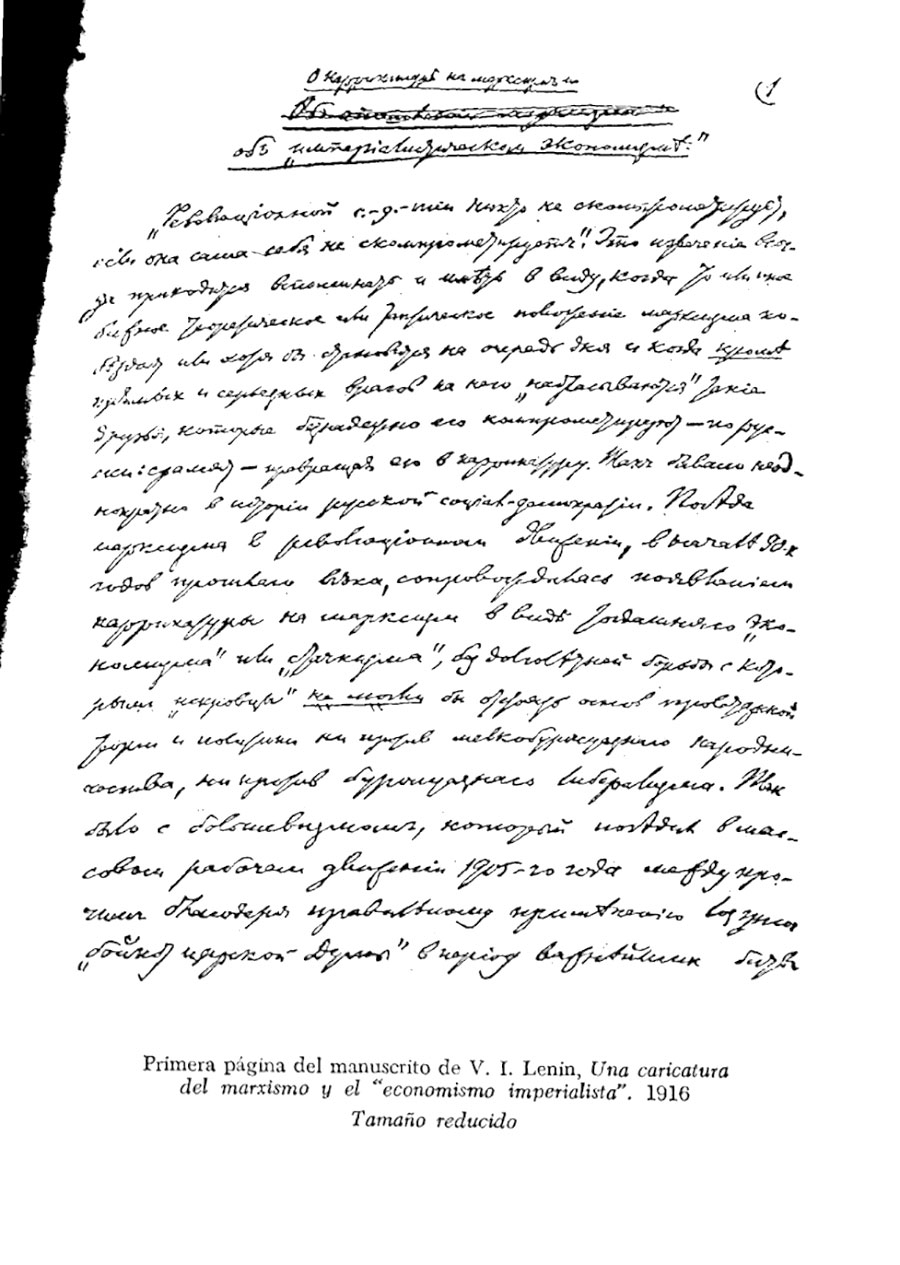 О каррикатурѣ на марксизмъ и
(1
объ „имперіалистическомъ экономизмѣ“
„Революціонной с.-д.-тіи никто не скомпрометируетъ,
если она сама себя не скомпрометируетъ“. Это изреченіе всег-
да приходится вспоминать и имѣть в виду, когда то или иное
важное теоретическое или тактическое положеніе марксизма по-
бѣждает или хотя бы становится на очередь дня и когда кромѣ
прямых и серьезных врагов на него „набрасываются“ такіе
друзья, которые безнадежно его компрометируют — по рус-
ски: срамят — превращая его в каррикатуру. Такъ бывало неод-
нократно в исторіи русской соціал-демократіи. Побѣда
марксизма в революціонном движеніи, в началѣ 90-х
годов прошлаго вѣка, сопровождалась появленіем
каррикатуры на марксизм в видѣ тогдашняго „эко-
номизма“ или „стачкизма“, без долголѣтней борьбы с кото-
рым „искровцы“ не могли бы отстоять основ пролетарской
теоріи и политики ни против мелкобуржуазнаго народни-
чества, ни против буржуазнаго либерализма. Так
было с большевизмомъ, который побѣдил в мас-
совом рабочем движеніи 1905-го года между про-
чим благодаря правильному примѣненію лозунга
„бойкот царской Думы“ в період важнѣйших битв
Primera página del manuscrito de V. I. Lenin, Una caricatura
del marxismo y el “economismo imperialista”. 1916
Tamaño reducido